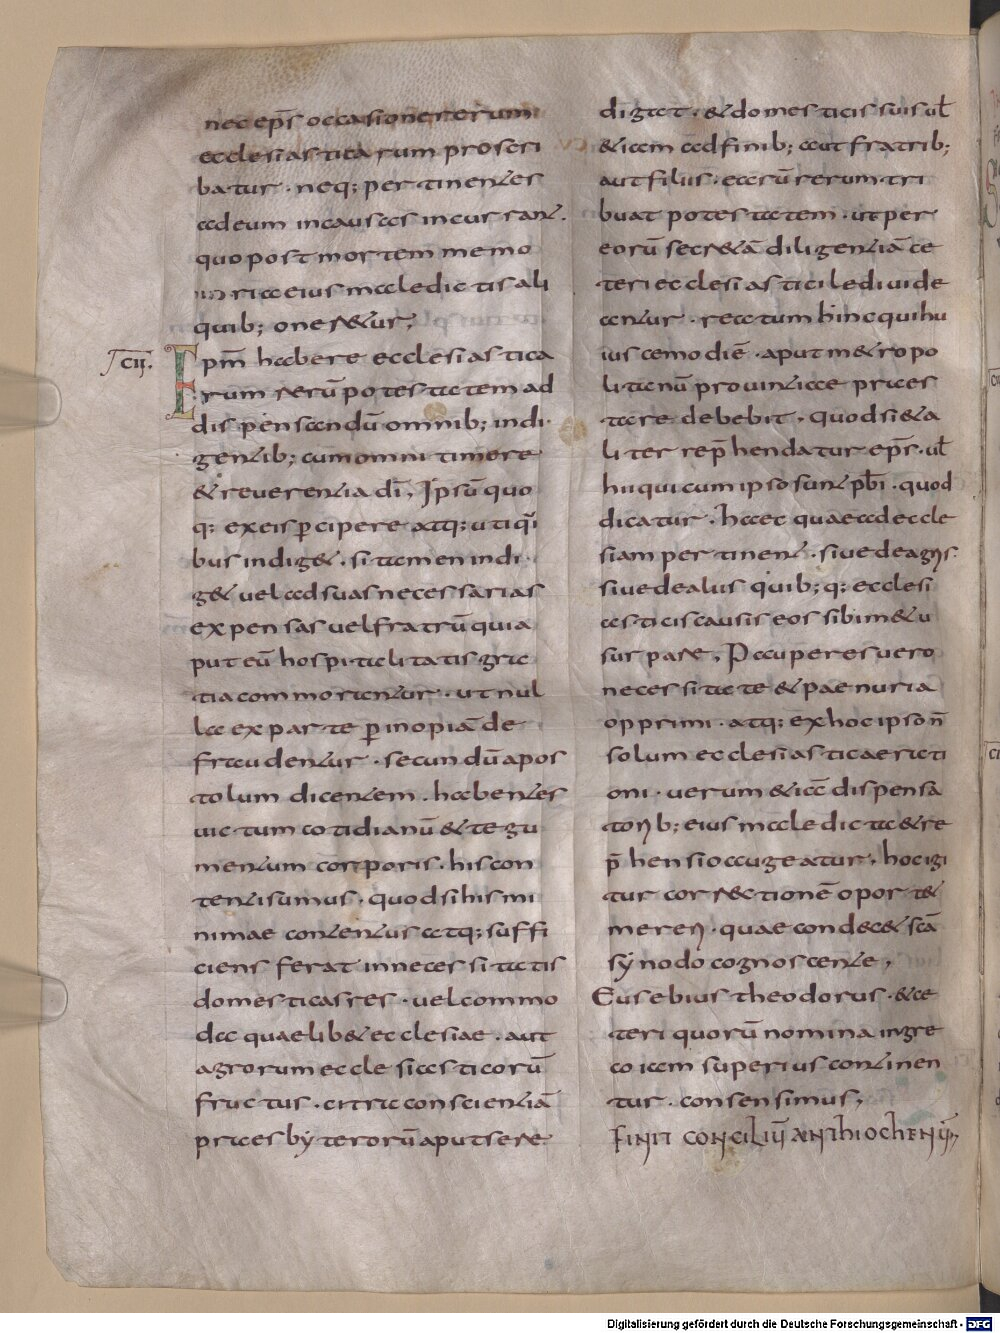 nec ep̄s occasione rerum
ecclesiasticarum proscri
batur · neq; pertinentes
ad eum in causas incurrant ·
quo post mortem memo
ria eius maledictis ali
quib; oneretur;
cii.
Ep̄m habere ecclesiastica
rum rerū potestatem ad
dispensandū omnib; indi
gentib; cum omni timore
& reuerentia dī, Ipsū quo
q; ex eis p̄cipere atq; uti qui
bus indig& · si tamen indi
g& uel ad suas necessarias
expensas uel fratrū qui a
put eū hospitalitatis gra
tia commorantur · ut nul
la ex parte p̄ inopiā de
fraudentur · secundū apos
tolum dicentem · habentes
uictum cotidianū & tegu
mentum corporis · his con
tenti sumus · quod si his mi
nimae contentus atq; suffi
ciens ferat in necessitatis
domesticas res · uel commo
da quaelib& ecclesiae · aut
agrorum ecclesiasticorū
fructus · citra conscientiā
praesbyterorū aput se re
digat · & domesticis suis uƚ
&iam adfinib; aut fratrib;
aut filiis · earū rerum tri
buat potestatem · ut per
eorū secr&ā diligentiā ce
teri ecclesiastici lediuide
antur · reatum hinc qui hu
iuscemodi ē · aput m&ropo
litanū prouinciae praes
tare debebit · quod si & a
liter rep̄hendatur ep̄s · uƚ
hii qui cum ipso sunt pb̄i · quod
dicatur · haec quae ad eccle
siam pertinent · siue de agris
siue de aliis quib; q; ecclesi
asticis causis eos sibim& u
surpare, Pauperes uero
necessitate & paenuria
opprimi · atq; ex hoc ipso n̄
solum ecclesiasticae rati
oni · uerum &iā dispensa
torib; eius maledicta & re
p̄hensio augeatur, hoc igi
tur correctionē oport&
mereri · quae condec& scā
synodo cognoscente,
Eusebius theodorus · & ce
teri quorū nomina in gre
co iam superius continen
tur · consensimus,
FINIT CONCILIŪ ANTHIOCHENŪ,
Digitalisierung gefördert durch die Deutsche Forschungsgemeinschaft - DFG